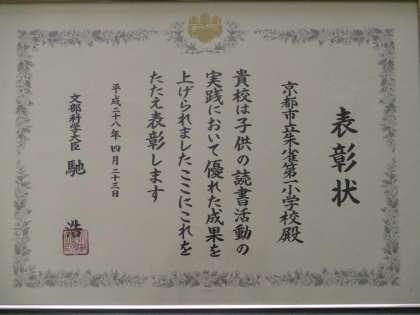 表彰状
京都市立朱雀第一小学校殿
貴校は子供の読書活動の
実践において優れた成果を
上げられましたここにこれを
たたえ表彰します
平成二十八年四月二十三日
文部科学大臣 馳 浩